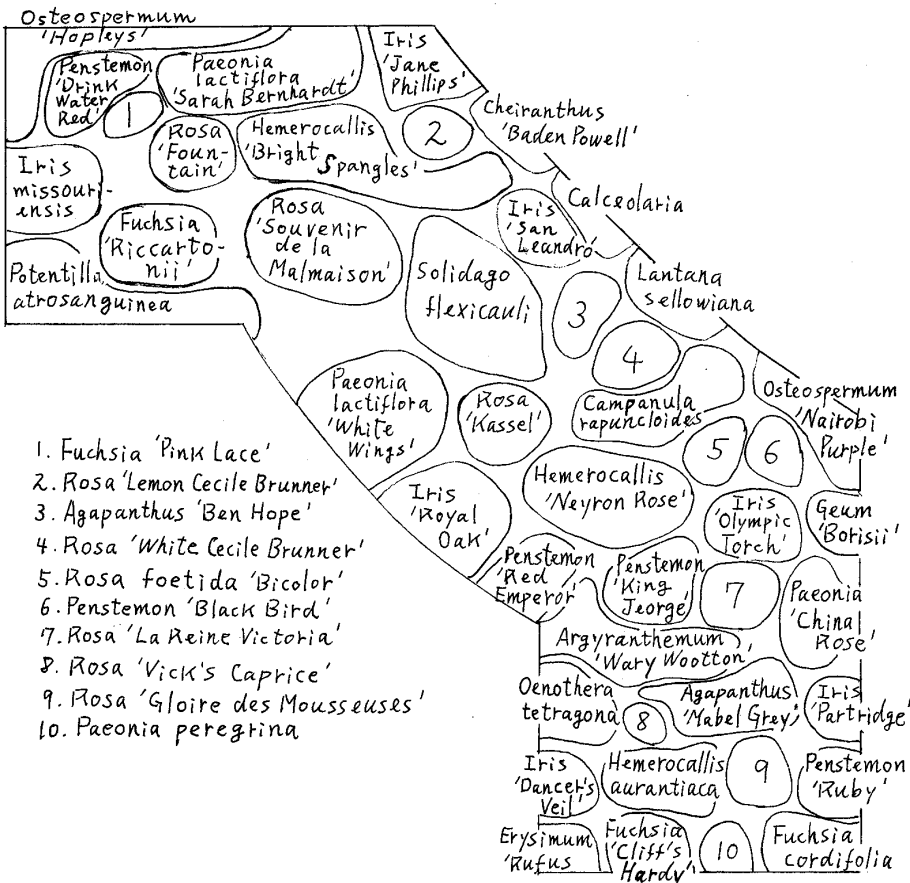 Osteospermum
'Hopleys'
Penstemon
'Drink
Water
Red'
1
Paeonia
lactiflora
'Sarah Bernhardt'
Iris
'Jane
Phillips'
Cheiranthus
'Baden Powell'
2
Rosa
'Foun-
tain'
Hemerocallis
'Bright
Spangles'
Iris
missouri-
ensis
Calceolaria
Iris
'San
Leandro'
Fuchsia
'Riccarto-
nii'
Rosa
'Souvenir
de la
Malmaison'
Potentilla
atrosanguinea
Solidago
flexicauli
3
Lantana
sellowiana
4
Paeonia
lactiflora
'White
Wings'
Rosa
'Kassel'
Campanula
rapuncloides
Osteospermum
'Nairobi
Purple'
5
6
Hemerocallis
'Neyron Rose'
Iris
'Royal
Oak'
Iris
'Olympic
Torch'
Geum
'Borisii'
Penstemon
'Red
Emperor'
Penstemon
'King
Jeorge'
7
Paeonia
'Chinal
Rose'
Argyranthemum
'Wary Wootton'
Oenothera
tetragona
8
Agapanthus
'Mabel Grey'
Iris
'Partridge'
Iris
'Dancer's
Veil'
Hemerocallis
aurantiaca
9
Penstemon
'Ruby'
Erysimum
'Rufus
Fuchsia
'Cliff's
Hardy'
10
Fuchsia
cordifolia
1. Fuchsia 'Pink Lace'
2. Rosa 'Lemon Cecile Brunner'
3. Agapanthus 'Ben Hope'
4. Rosa 'White Cecile Brunner'
5. Rosa foetida 'Bicolor'
6. Penstemon 'Black Bird'
7. Rosa 'La Reine Victoria'
8. Rosa 'Vick's Caprice'
9. Rosa 'Gloire des Mousseuses'
10. Paeonia peregrina